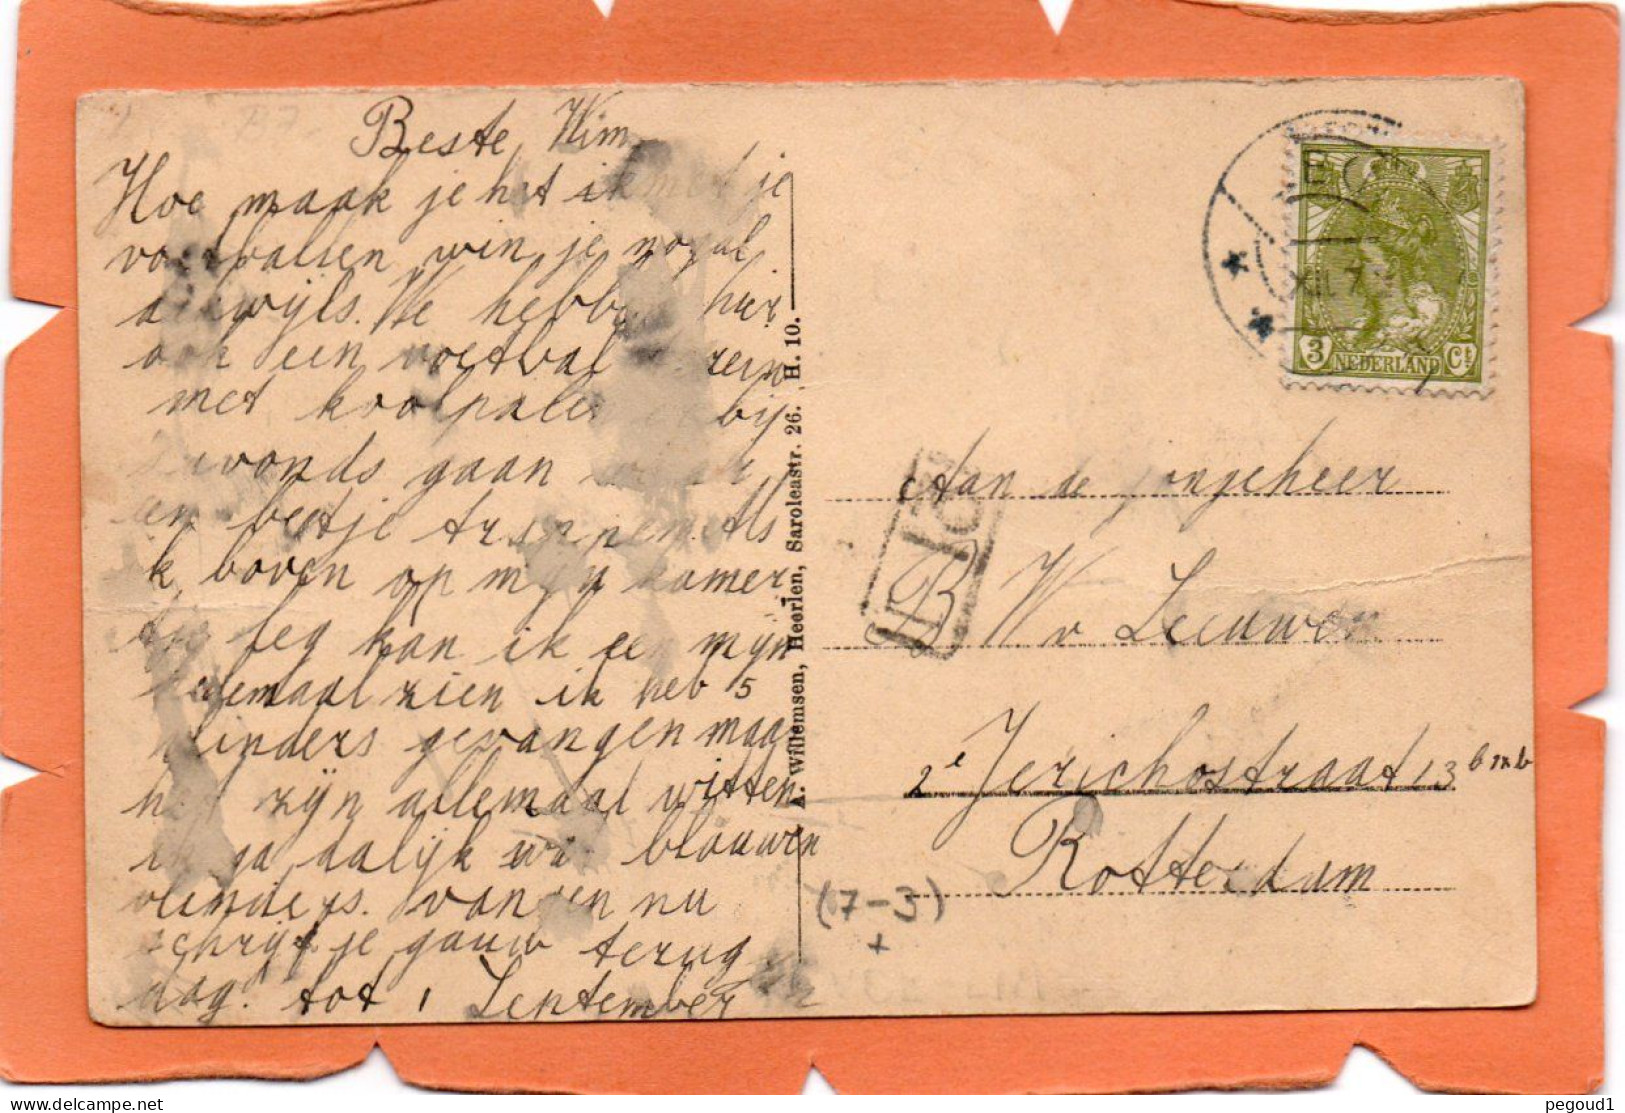 Beste Wim
Hoe maak je het ik met je
voetballen win je nogal
We hebben hier
ook een voetbal
met koolpalen bij
avonds gaan
een beetje trappen. Als
k boven op mijn kamer
leg kan ik een mijn
helemaal zien ik heb 5
vlinders gevangen maar
het zijn allemaal witten
ik ga dalijk blauwen
vlinders. vangen nu
schrijf je gauw terug
dag. tot 1 September
A. Willemsen, Heerlen, Saroleastr. 26. H. 10.
NEDERLAND
3 Ct
XII.7
Aan de jongeheer
W v Leeuwen
2e Jerichostraat 13
Rotterdam
(7-3)
+
pegoud1